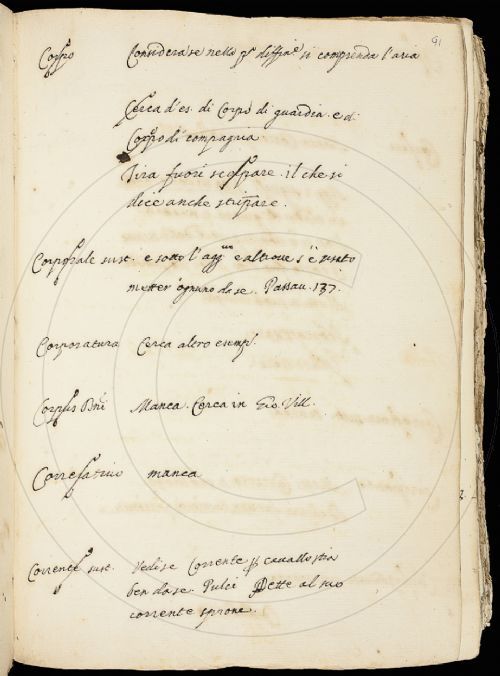 91
Corpo Considera se nella pa diffine si comprenda l'aria
Cerca d'es. di Corpo di guardia. e di
Corpo di compagnia
Tira fuori scorpare. il che si
dice anche stripare.
Corporale sust. e sotto l'agg.uo e altrove s'è usato
metter ognuno da se. Passau. 137.
Corporatura Cerca altro esemp.
Corpus Dni Manca. Cerca in Gio Vill.
manca
2.
Corrente sust. Vedi se Corrente p cavallo stia
ben da se. Pulci Dette al suo
corrente sprone.